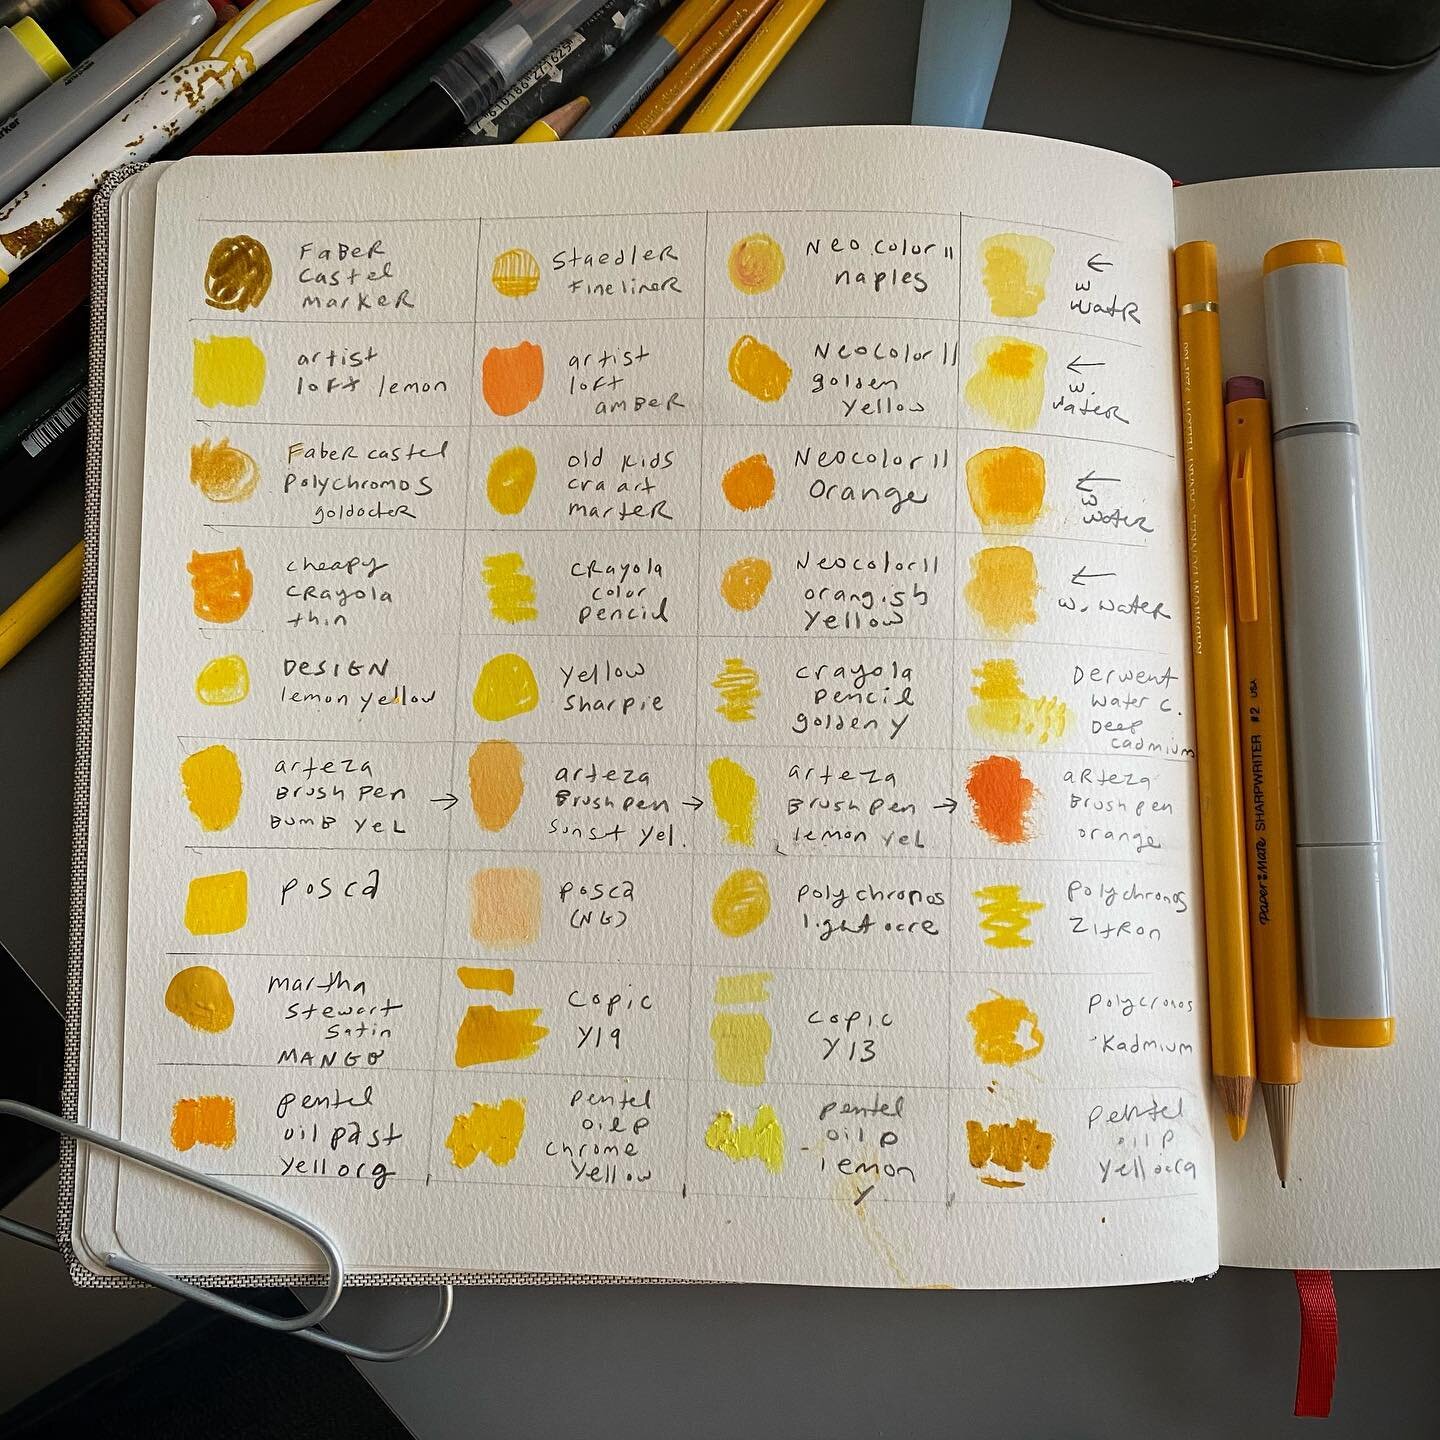 7610186271625
FABER
Castel
marker
Staedler
Fineliner
Neo Color II
naples
←
w
water
artist
loft lemon
artist
loft
amber
Neocolor II
golden
Yellow
←
w.
water
Faber castel
polychromos
goldocker
old kids
cra art
marker
Neocolor II
Orange
←
w
water
cheapy
crayola
thin
crayola
color
pencil
Neocolor II
orangish
yellow
←
w. water
DESIGN
lemon yellow
yellow
sharpie
crayola
pencil
golden y
Derwent
Water C.
Deep
cadmium
arteza
Brush pen →
Bumb Yel
arteza
Brush pen →
Sunst yel.
arteza
Brush pen →
lemon yel
arteza
Brush pen
orange
posca
posca
(NG)
polychronos
light ocre
polychronos
Zitron
martha
Stewart
Satin
MANGO
Copic
Y19
Copic
Y13
polycronos
Kadmium
pentel
oil past
yell org
pentel
oil p
chrome
yellow
pentel
oil p
lemon
y
pentel
oil p
yell ocra
Paper:Mate SHARPWRITER #2 USA